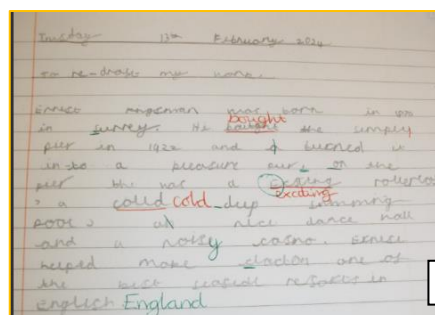 Tuesday 13th February 2024
to re-draft my work.
Ernest Kingsman was born in
bought
in surrey. He the simply
pier in 1922 and turned it
in to a pleasure pier. on the
pier the was a exsiting
exciting
a could cold deep swimming
pool, a nice dance hall
and a noisy casno. Ernest
helped make clacton one of
the best seaside resorts in
english England